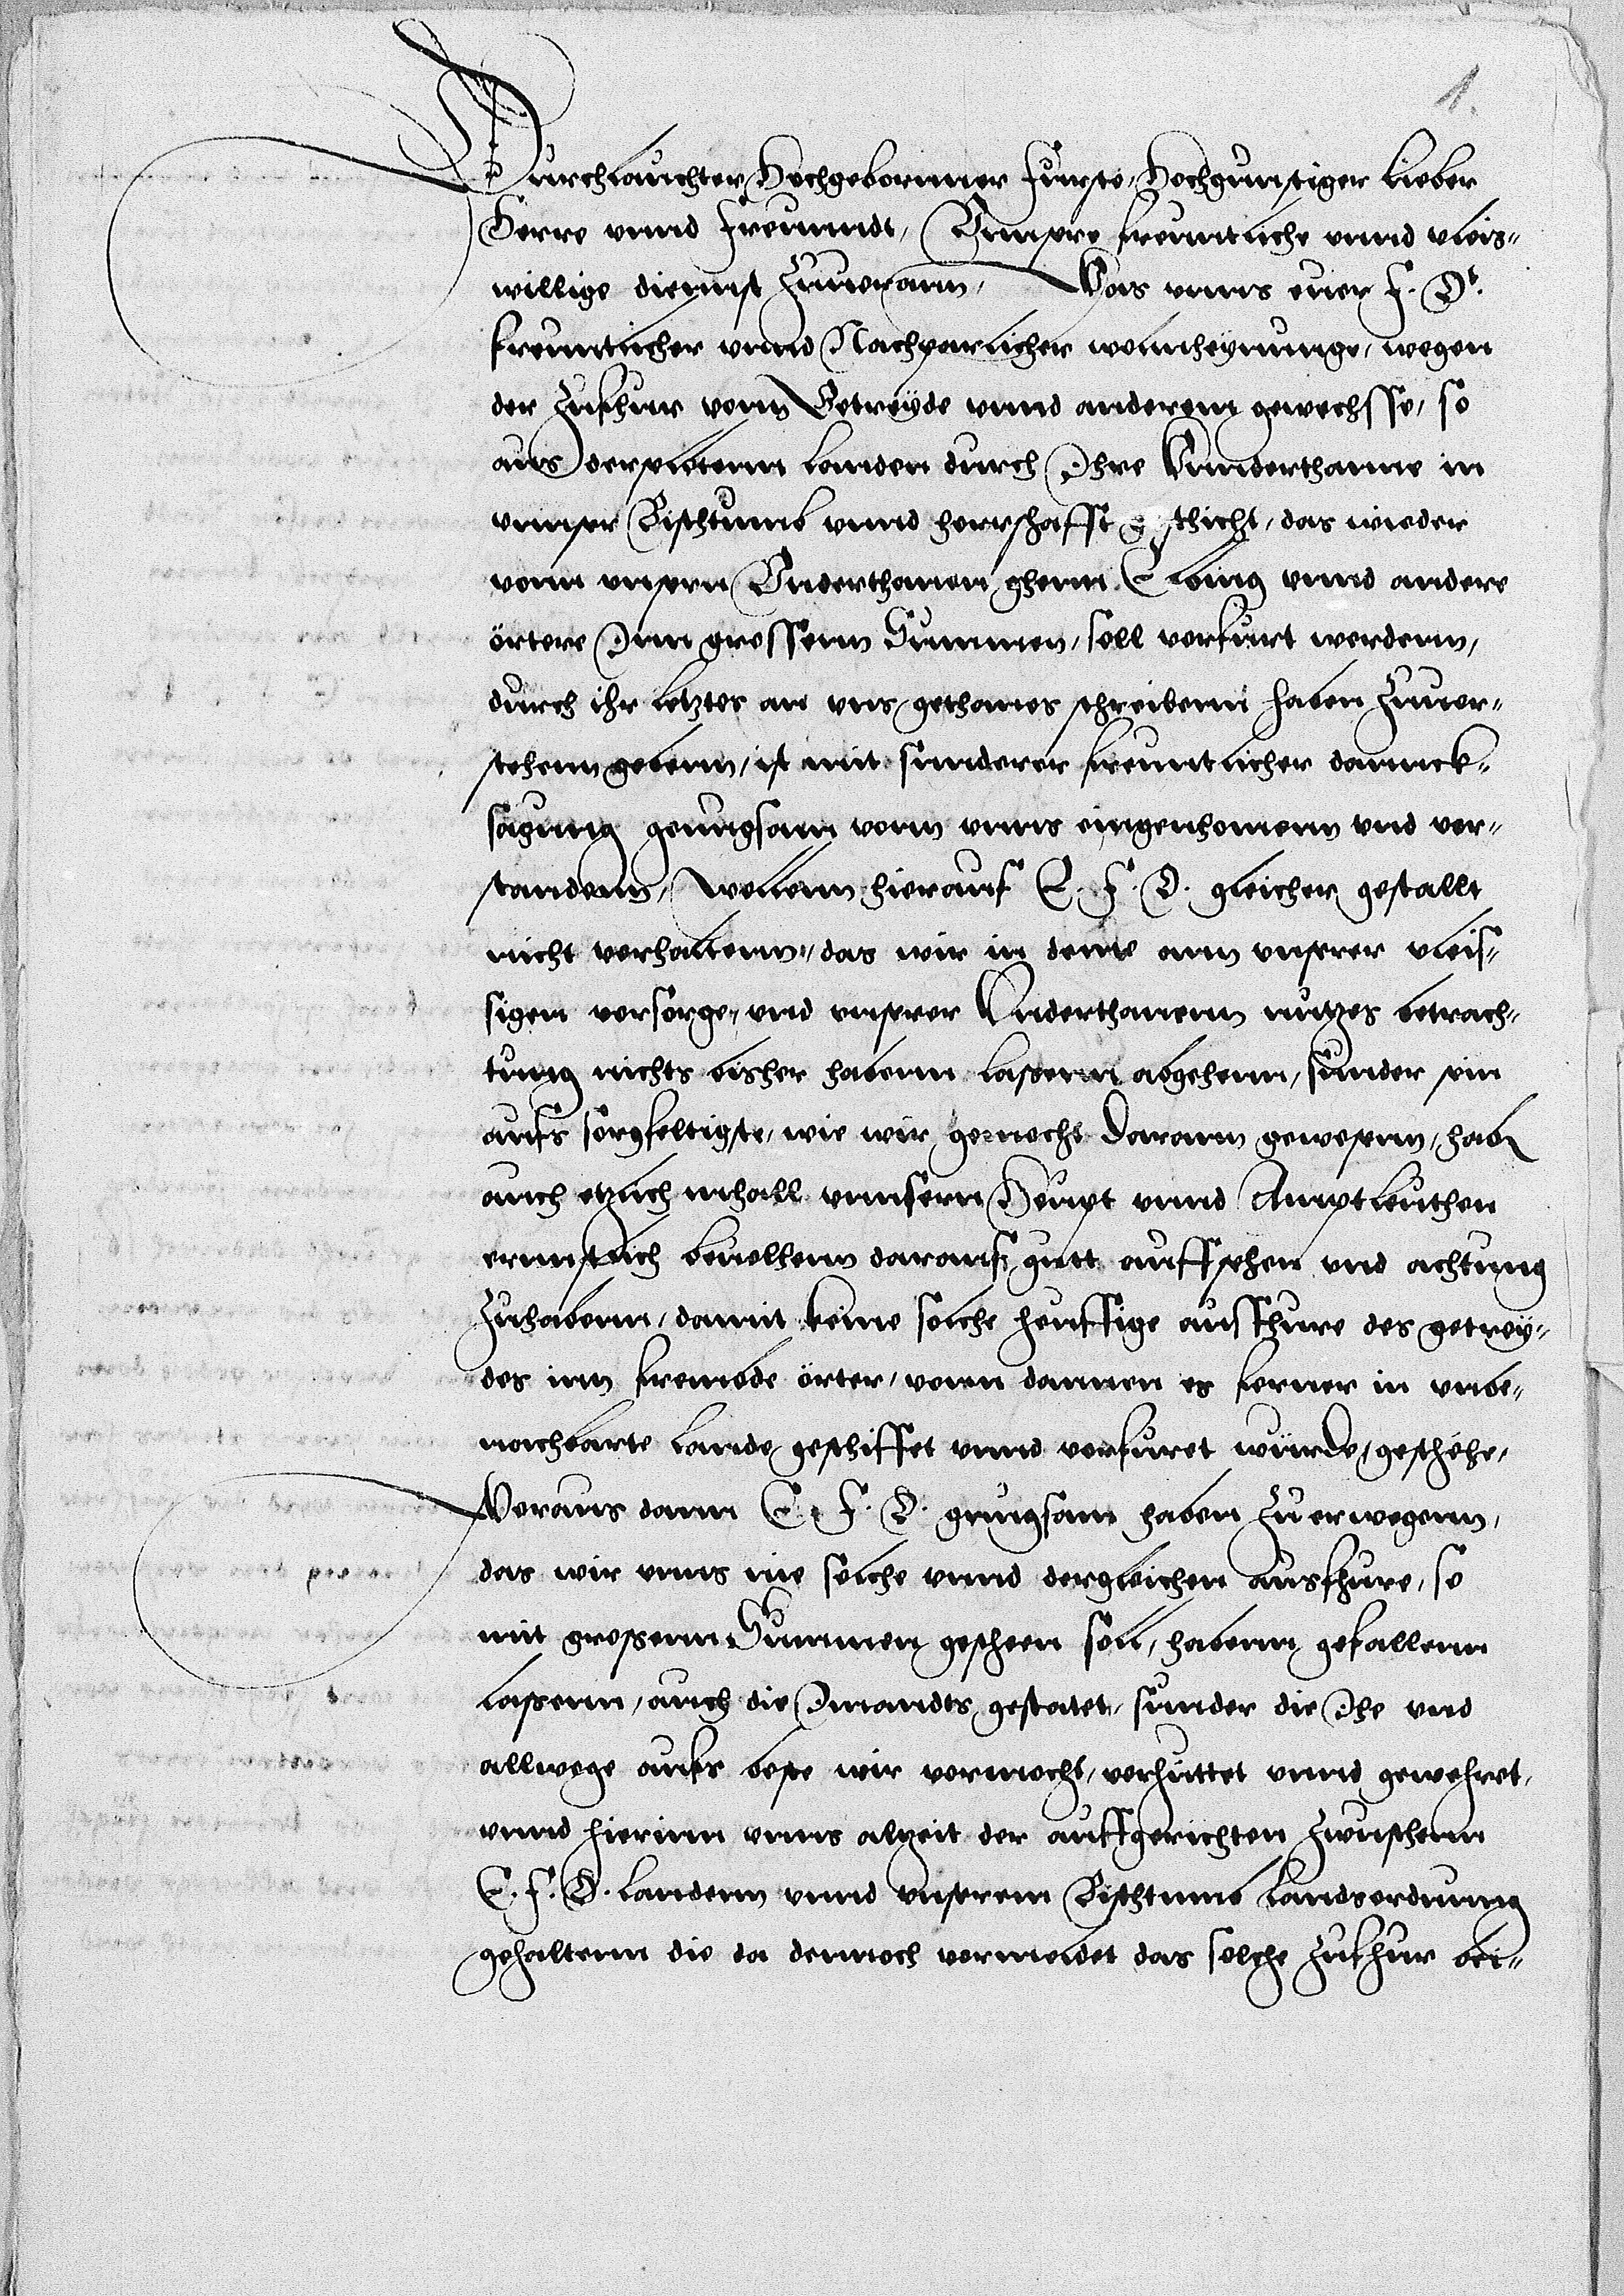 1.
Durchlauchter Hochgebornner Furste, Hochgunstiger lieber
Herre vnnd Freunndt, Vnnsere freuntliche vnnd vleis-
willige diennst zuuorann, Was vnns euer F. Dt.
freuntlicher vnnd Nachparlicher wolmeynunge, wegen
der zukhur vonn Getreyde vnnd anderem gewechsse, so
aus derselbenn landen durch Ihre Vnnderthanne in
vnnser Bischtumb vnnd herrschafft geschicht, das wieder
vonn vnsern Vnderthanen ghenn Elbing vnnd andere
örtere Inn grossenn Summen, soll verfurt werdenn,
durch ihr letztes an vns gethanes schreibenn haben zuuor-
stehenn gebenn, ist mit sunderer freuntlicher danck-
sagung gnugsam vonn vnns eingenhomenn vnd ver-
standenn, Wollenn hierauf E. F. D. gleicher gestallt
nicht verhaltenn, das wir in deme ann vnserer vleis-
sigen vorsorge, vnd vnserer Vnderthanenn nutzes betrach-
tung nichts bisher habenn lassenn abgehenn, sunder sein
aufs sorgfeltigste, wie wir gemocht darann gewesenn, habenn
auch etzlich mhall vnnsern Heupt vnnd Amptleuthen
ernnstlich beuolhenn darauf gutt auffsehen vnd achtung
zuhabenn, damit keine solche heuffige ausfhure des getrey-
des inn frembde örter, vonn dannen es ferner in vnbe-
nachbarte lande geschiffet vnnd verfuret wurde, geschehe,
Woraus dann E. F. D. gnugsam haben zu erwegenn,
das wir vnns nie solche vnnd dergleichen ausfhure, so
mit grossenn Summen gescheen soll, habenn gefallenn
lassenn, auch die Imandts gestatet, sunder die Ihe vnd
allwege aufs beste wir vermocht, verhuttet vnnd gewehret,
vnnd hierinn vnns altzeit der auffgerichten zwuschenn
E. F. D. landenn vnnd vnserem Bischtumb landsordnung
gehaltenn die da dennoch vermeldet das solche zukhur bei-